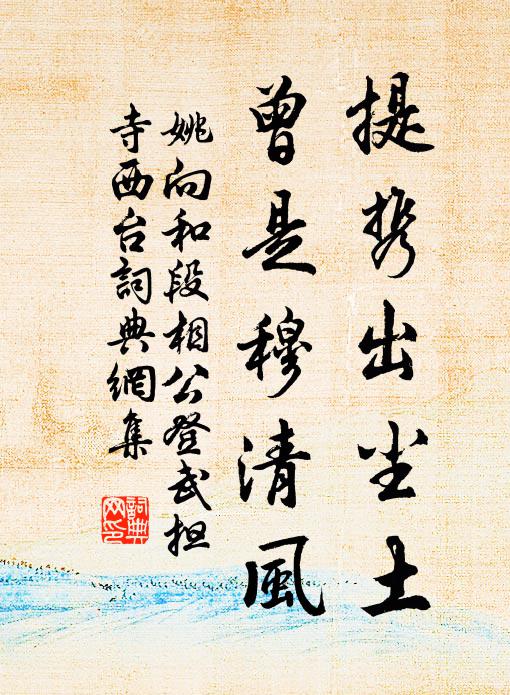 提携出尘土
曾是穆清風
姚向和段相公登武担
寺西台詞典網集
詞典
网印